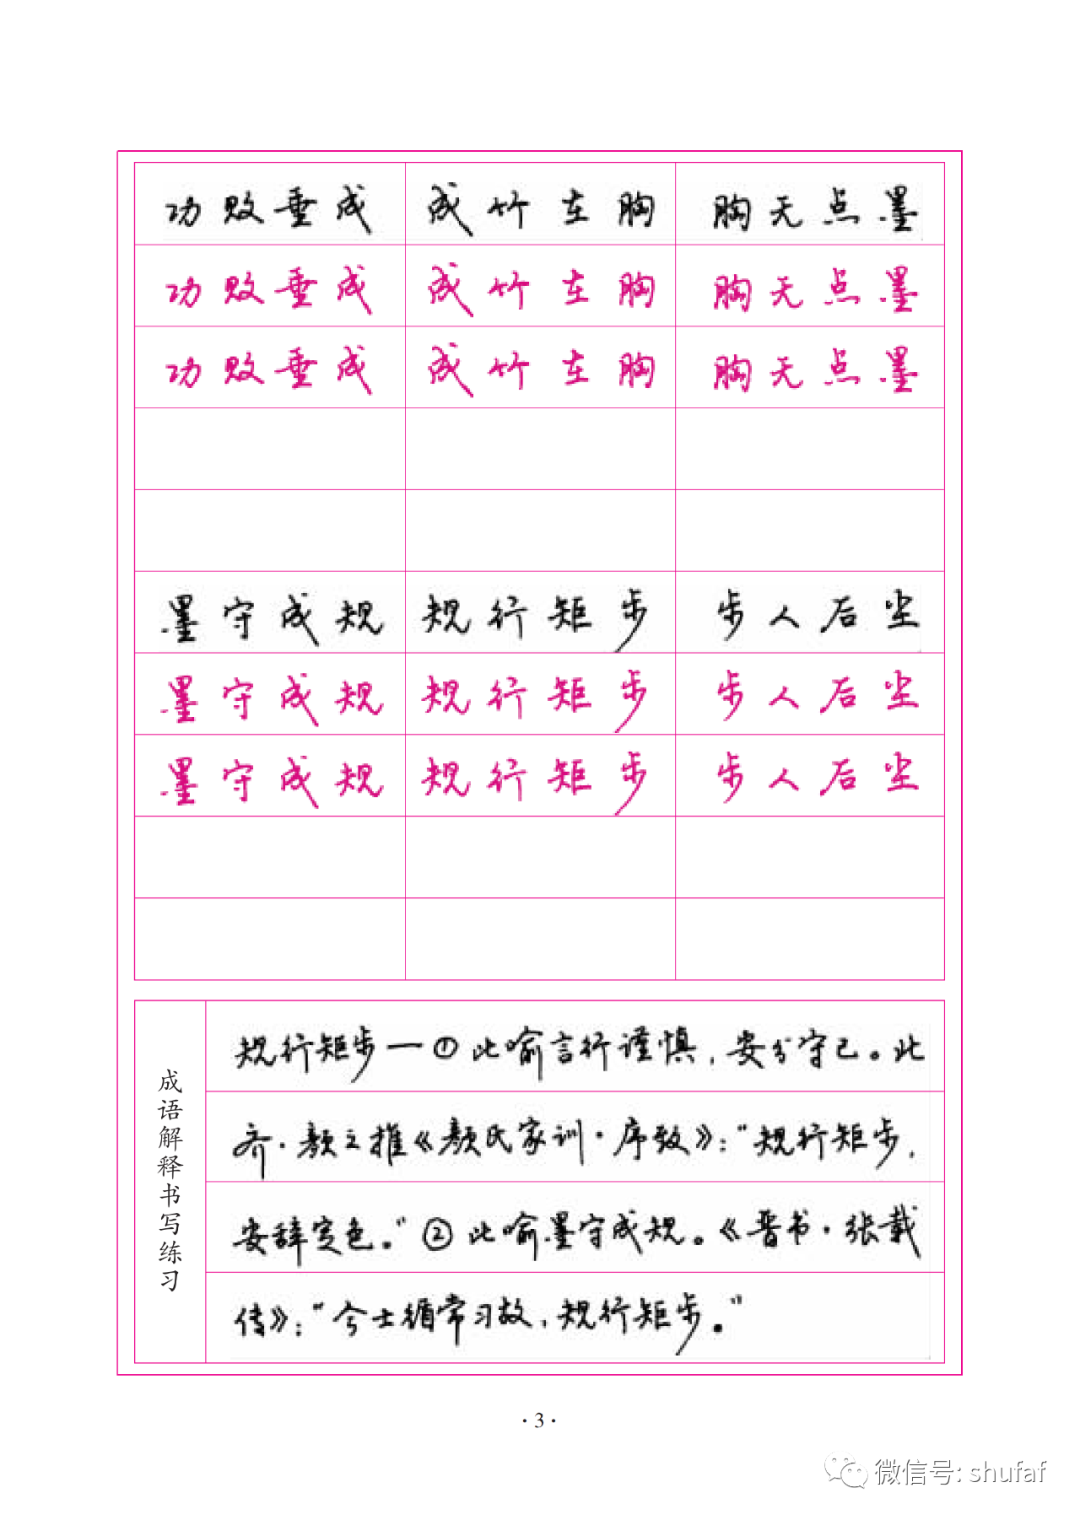 功败垂成 成竹在胸 胸无点墨
功败垂成 成竹在胸 胸无点墨
功败垂成 成竹在胸 胸无点墨
墨守成规 规行矩步 步人后尘
墨守成规 规行矩步 步人后尘
墨守成规 规行矩步 步人后尘
成语解释书写练习
规行矩步—①比喻言行谨慎,安分守己。北
齐·颜之推《颜氏家训·序致》:“规行矩步,
安辞定色。”②比喻墨守成规。《晋书·张载
传》:“今士循常习故,规行矩步。”
·3·
微信号: shufaf